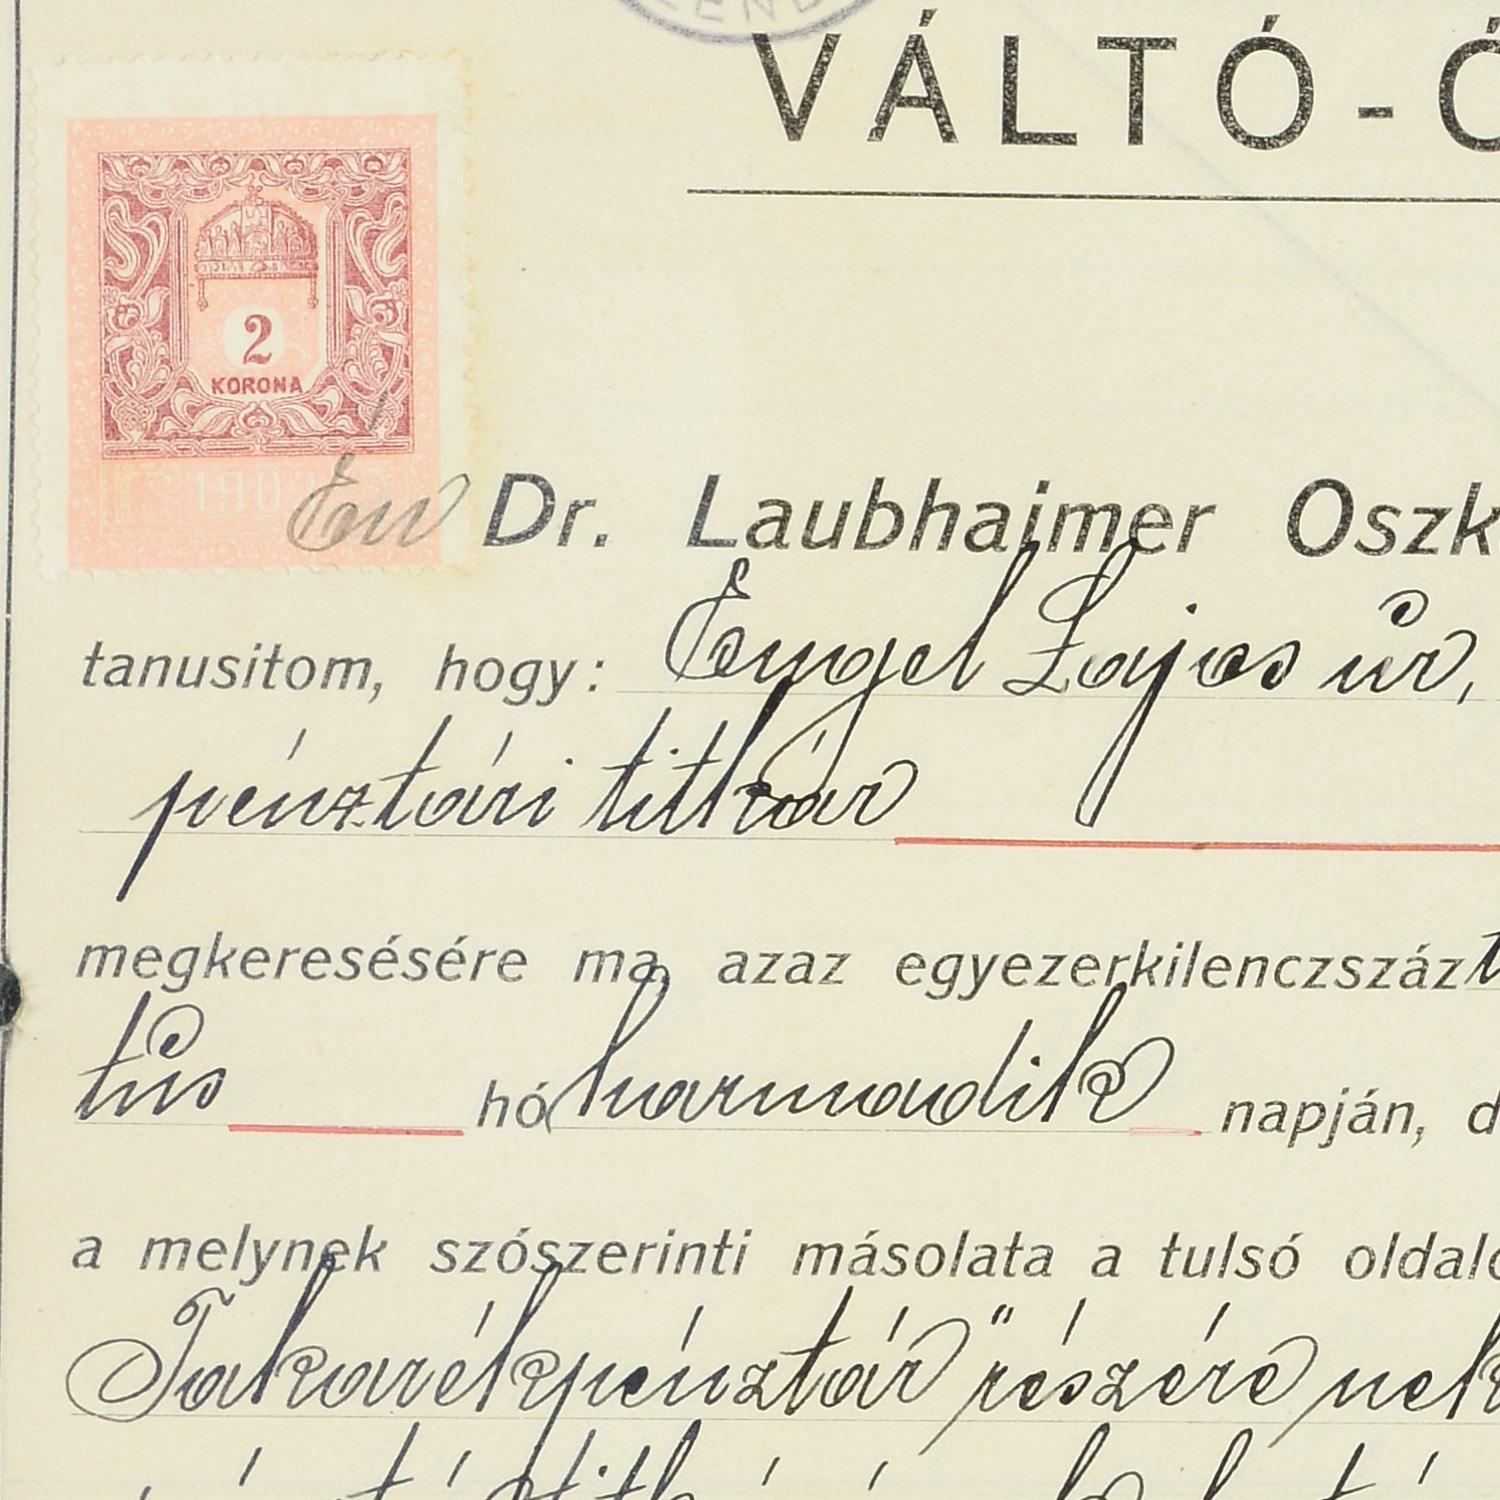 VÁLTÓ-Ó
2
KORONA
190
Én Dr. Laubhaimer Oszk
tanusitom, hogy: Engel Lajos úr,
pénztári titkár
megkeresésére ma, azaz egyezerkilenczszáz
tus hó harmadik napján, d
a melynek szószerinti másolata a tulsó oldalo
Takarékpénztár" részére nek